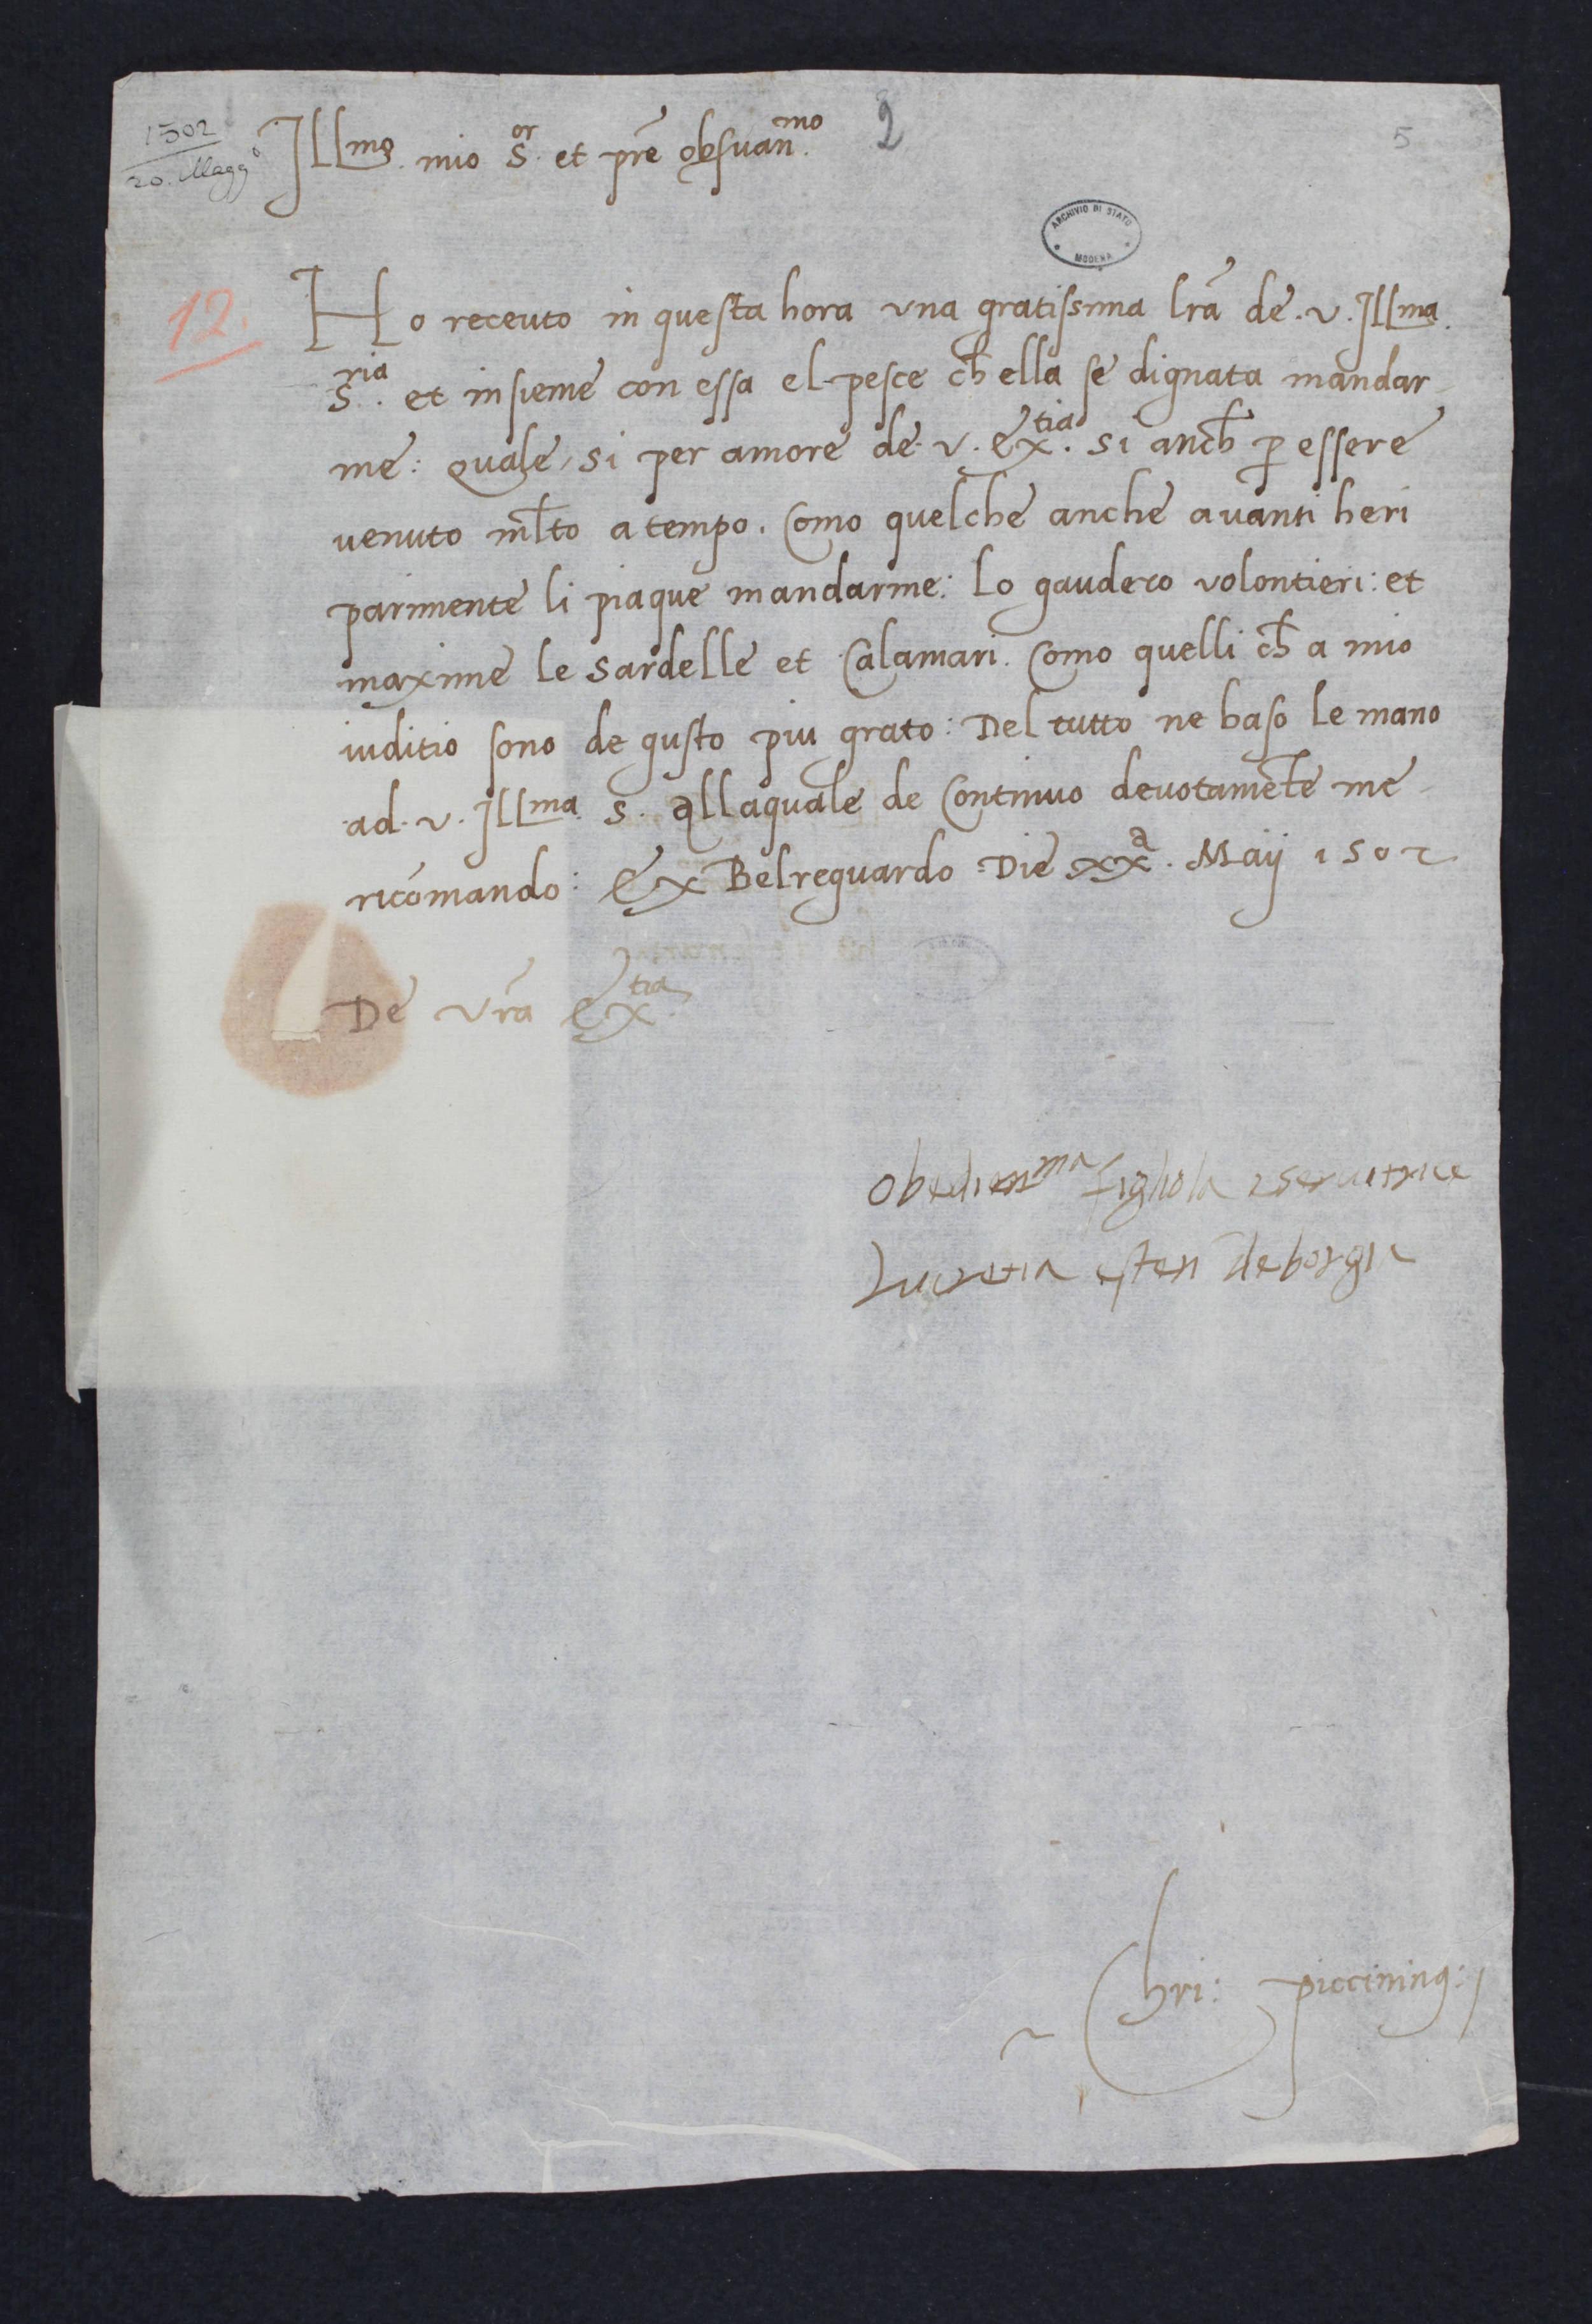 1502
20. Maggo
Jllmo. mio Sor. et prē obsuanmo.
2
5
ARCHIVIO DI STATO
MODENA
12.
Ho receuto in questa hora una gratissima lrā de. v. Jllma.
Sria. et insieme con essa el pesce ch̄ ella se dignata mandar
me: quale, si per amore de. v. Extia. si anch̄ p̱ essere
uenuto ml̄to a tempo. Como quelche anche auanti heri
parimente li piaque mandarme: Lo gaudero volontieri: et
maxime le Sardelle et Calamari. Como quelli ch̄ a mio
iuditio sono de gusto piu grato: Del tutto ne baso le mano
ad. v. Jllma. S. allaquale de Continuo deuotamēte me
ricōmando: Ex Belreguardo Die xxa. Maij 1502
De vrā Extia.
Obedienma figliola e seruitrice
Lucretia esten de borgia
Chri: piccininꝰ: